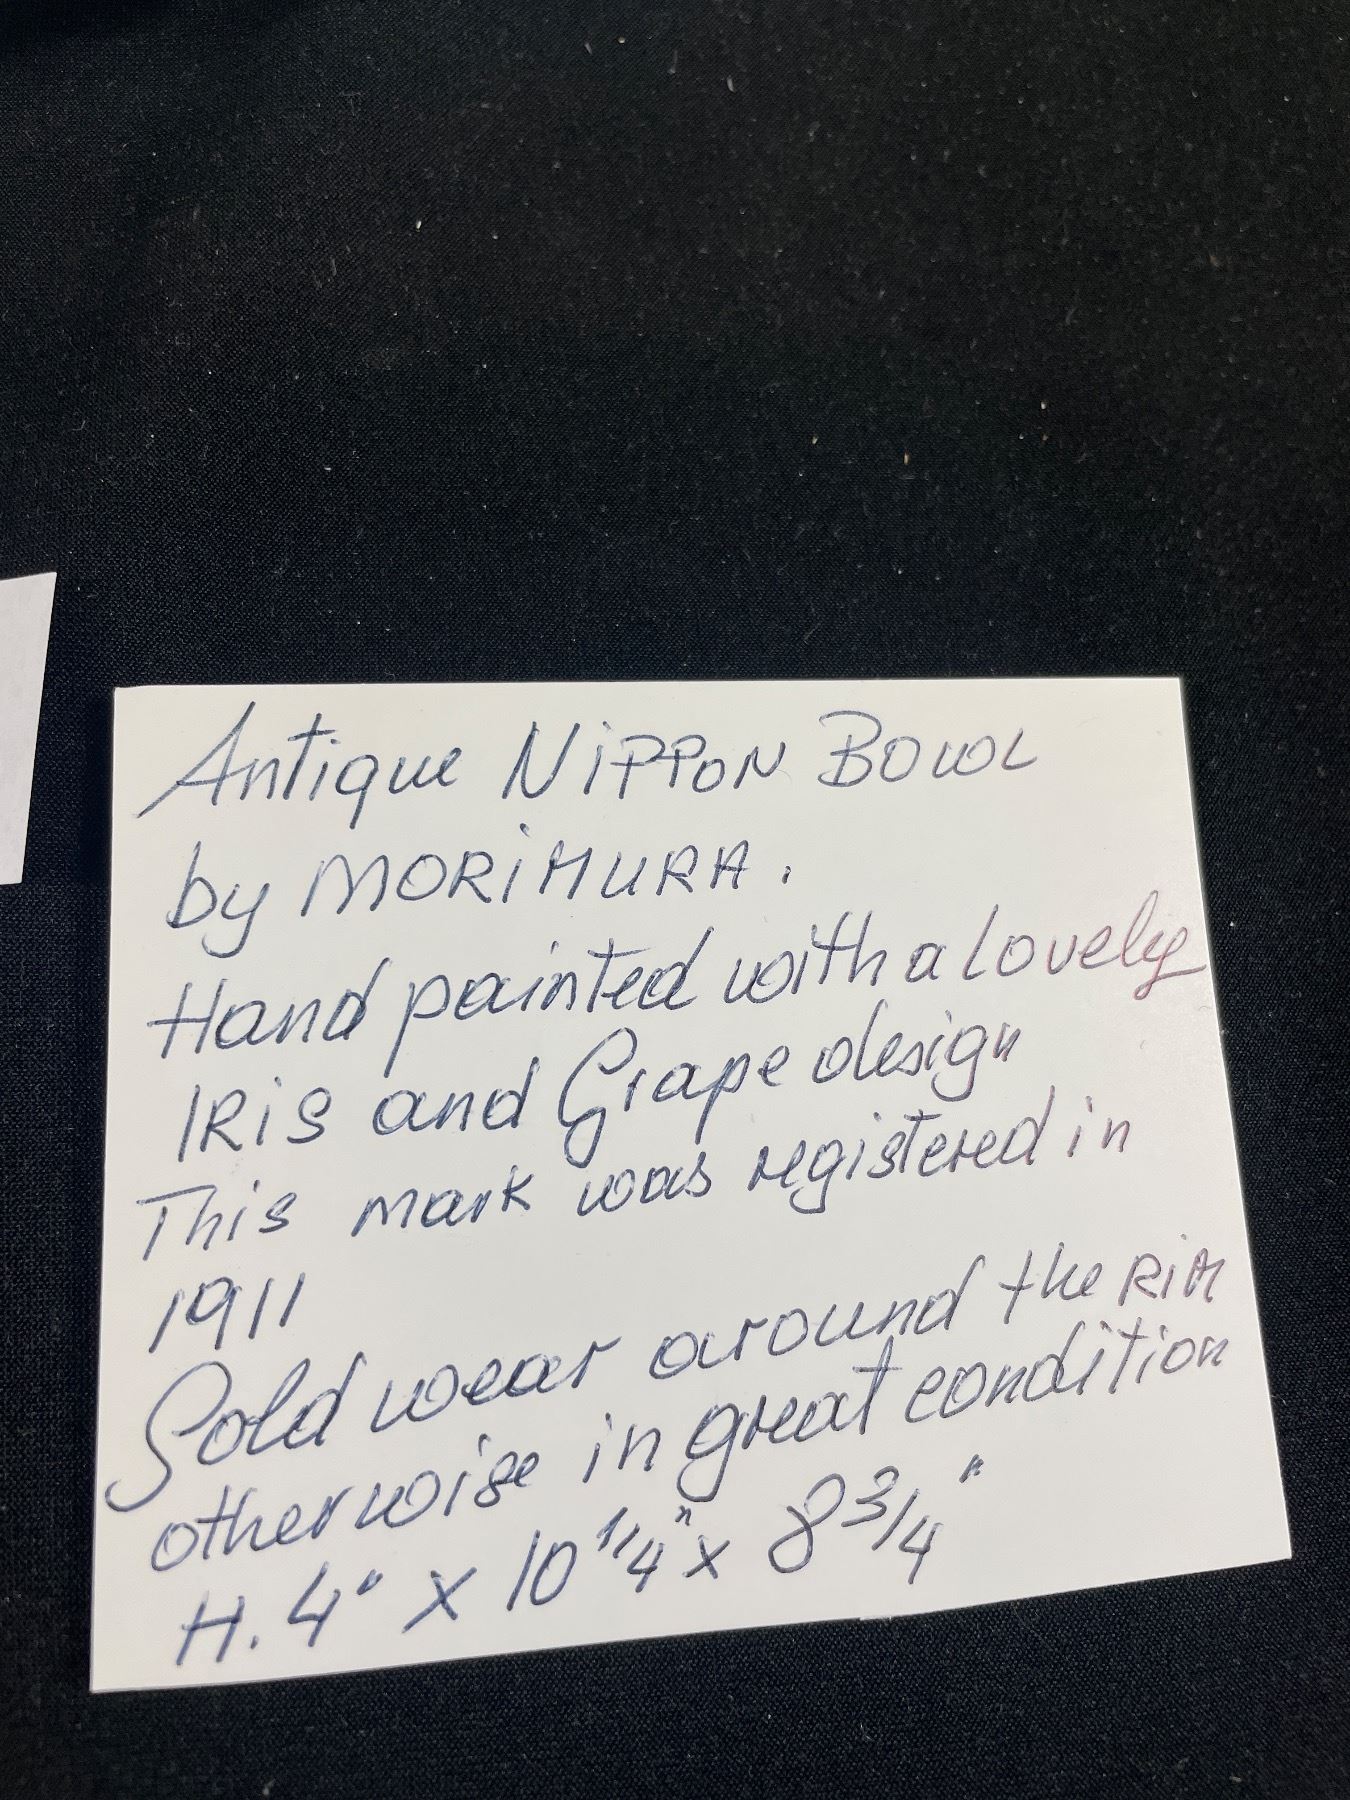 Antique NiPPON BOWL
by MORiMURA.
Hand painted with a lovely
IRiS and Grape design
This mark was registered in
1911
Gold wear around the RiM
otherwise in great condition
H. 4" x 10 1/4" x 8 3/4"